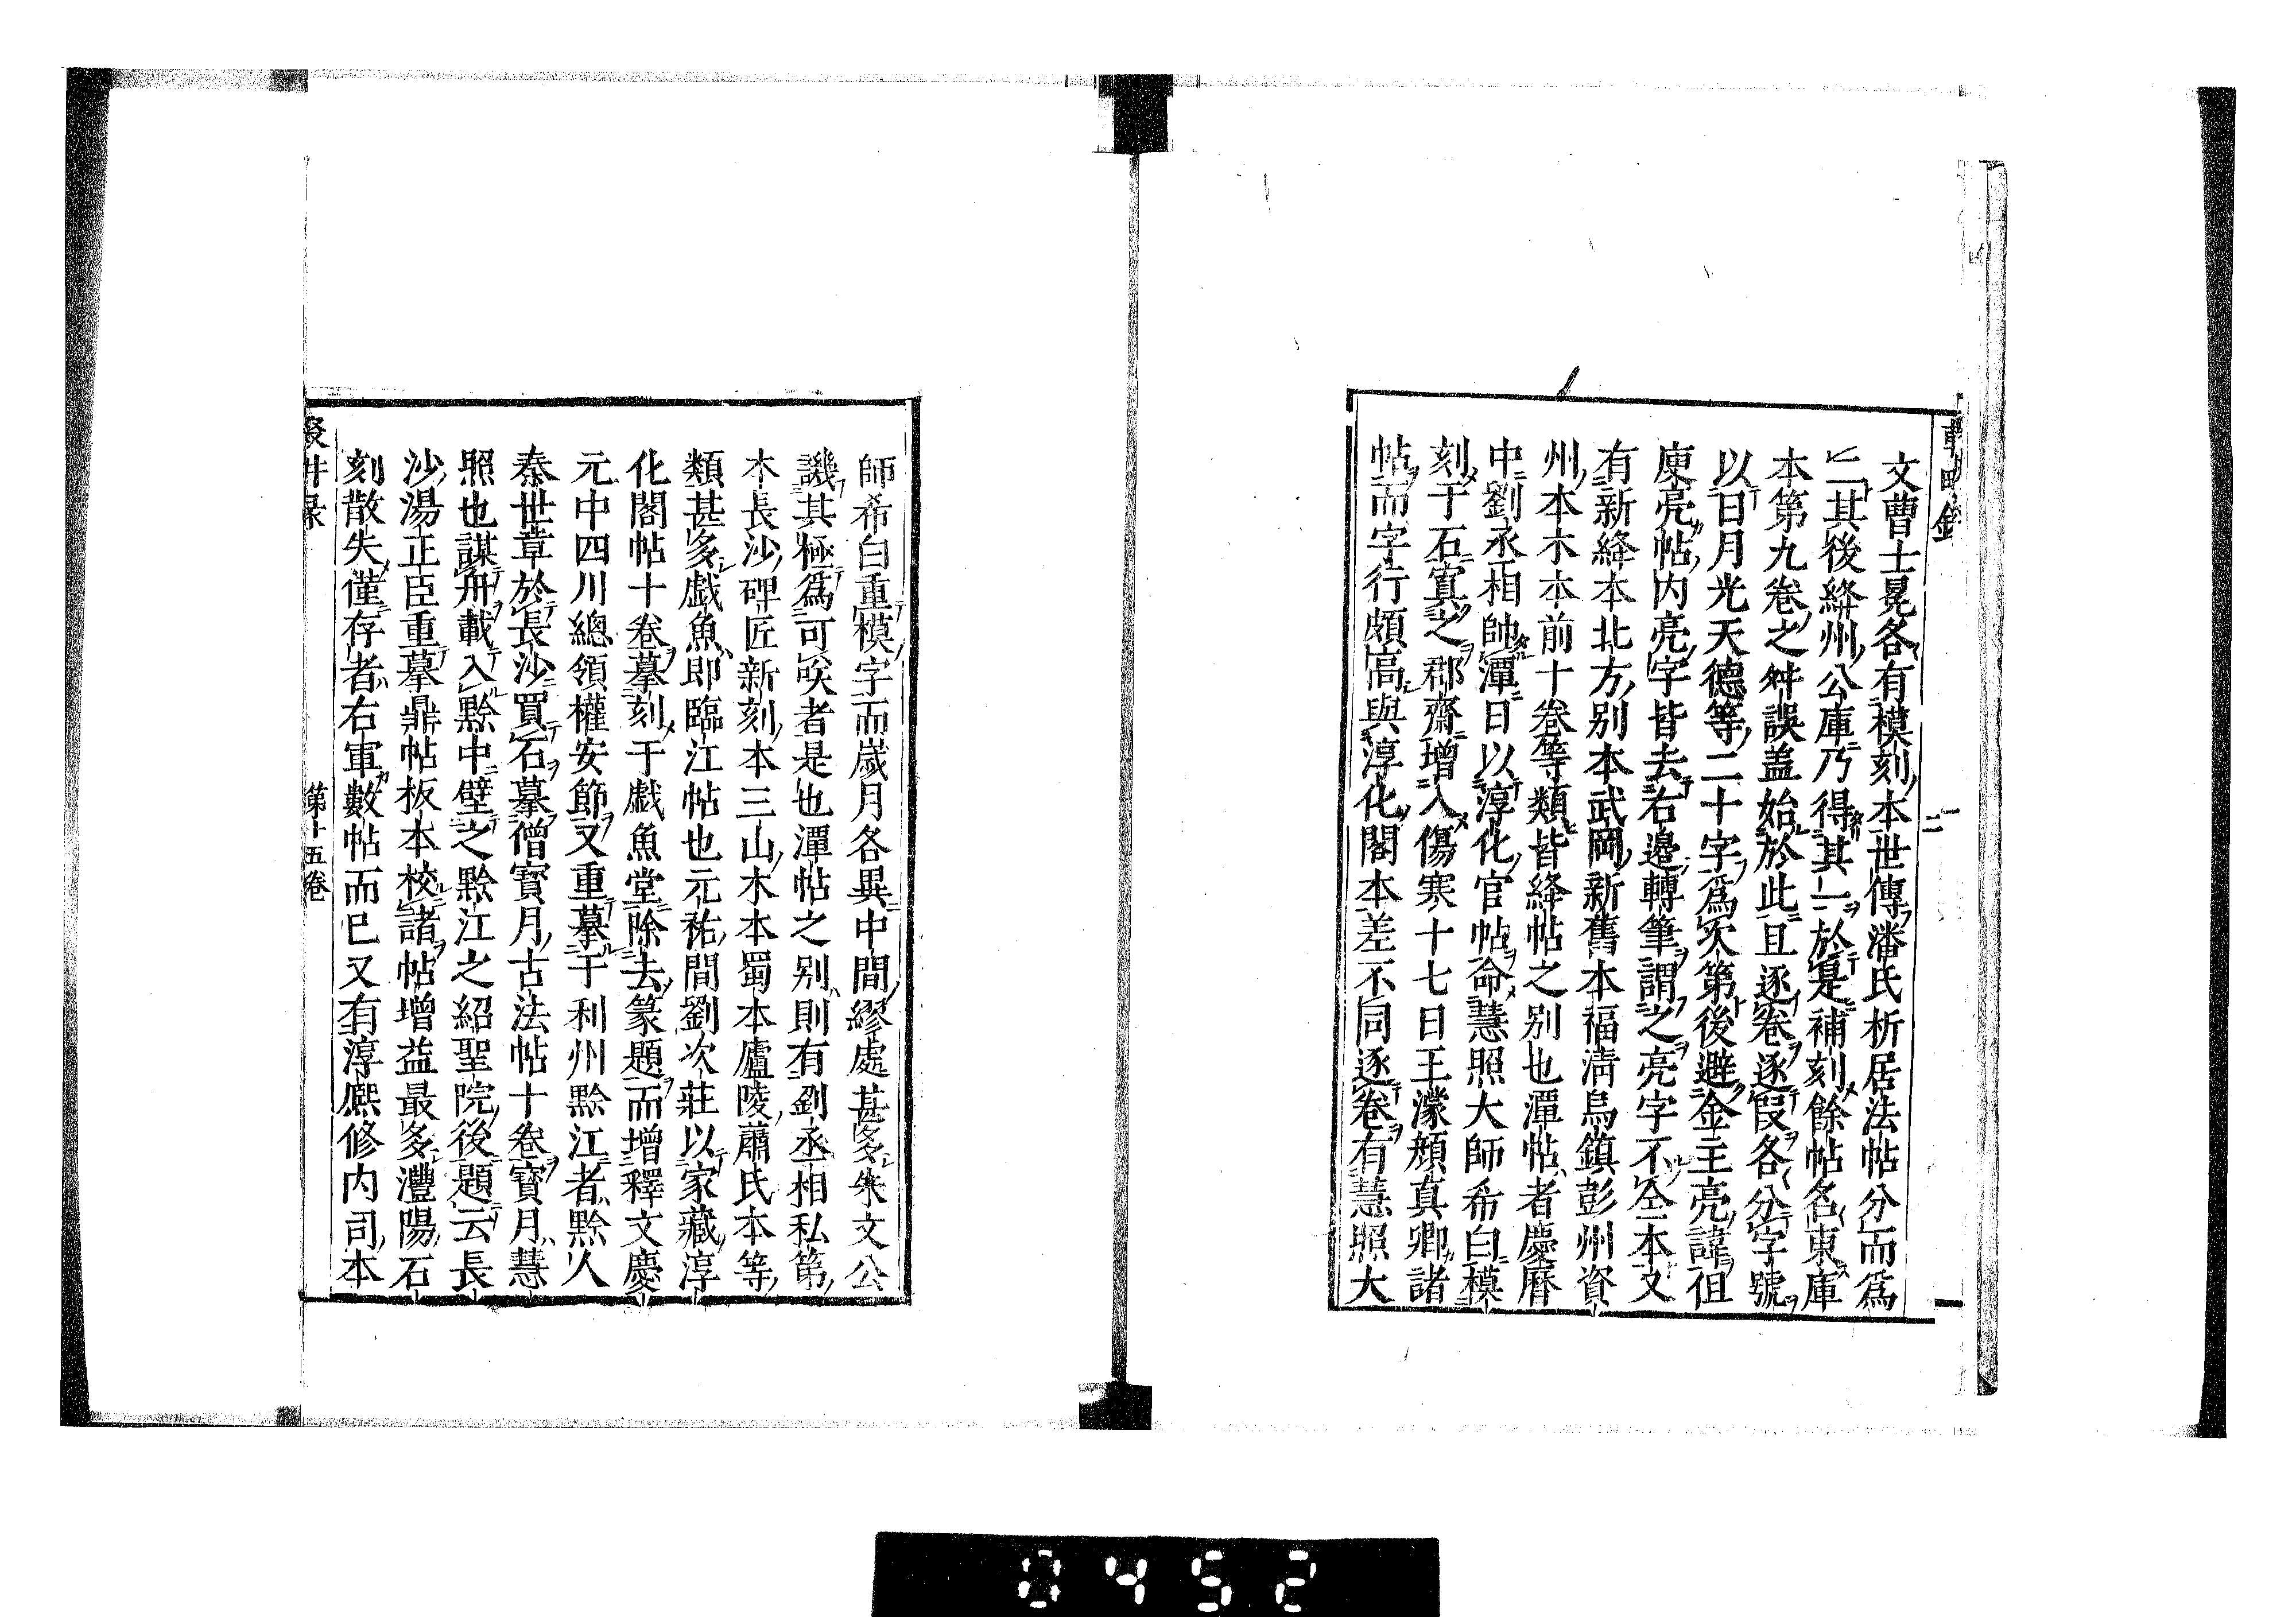 文曹士冕各有模刻本世傳潘氏析居法帖分而爲
二其後絳州公庫乃得其一於是補刻餘帖名東庫
本第九卷之舛誤盖始於此且逐卷逐叚各分字號
以日月光天德等二十字爲次第後避金主亮諱徂
庾亮帖内亮字皆去右邉轉筆謂之亮字不全本又
有新絳本北方别本武岡新舊本福淸烏鎮彭州資
州本木本前十卷等類皆絳帖之别也潭帖者慶曆
中劉丞相帥潭日以淳化官帖命慧照大師希白模
刻于石寘之郡齋增入傷寒十七日王濛顔真卿諸
帖而字行頗高與淳化閣本差不同逐卷有慧照大
師希白重模字而嵗月各異中間繆處甚多朱文公
譏其極爲可笑者是也潭帖之别則有劉丞相私第
本長沙碑匠新刻本三山木本蜀本廬陵蕭氏本等
類甚多戯魚即臨江帖也元祐間劉次莊以家藏淳
化閣帖十卷摹刻于戯魚堂除去篆題而增釋文慶
元中四川總領權安節又重摹于利州黔江者黔人
秦世章於長沙買石摹僧寳月古法帖十卷寳月慧
照也謀舟載入黔中壁之黔江之紹聖院後題云長
沙湯正臣重摹鼎帖板本校諸帖增益最多灃陽石
刻散失僅存者右軍數帖而已又有淳熈修内司本
第十五卷
0452